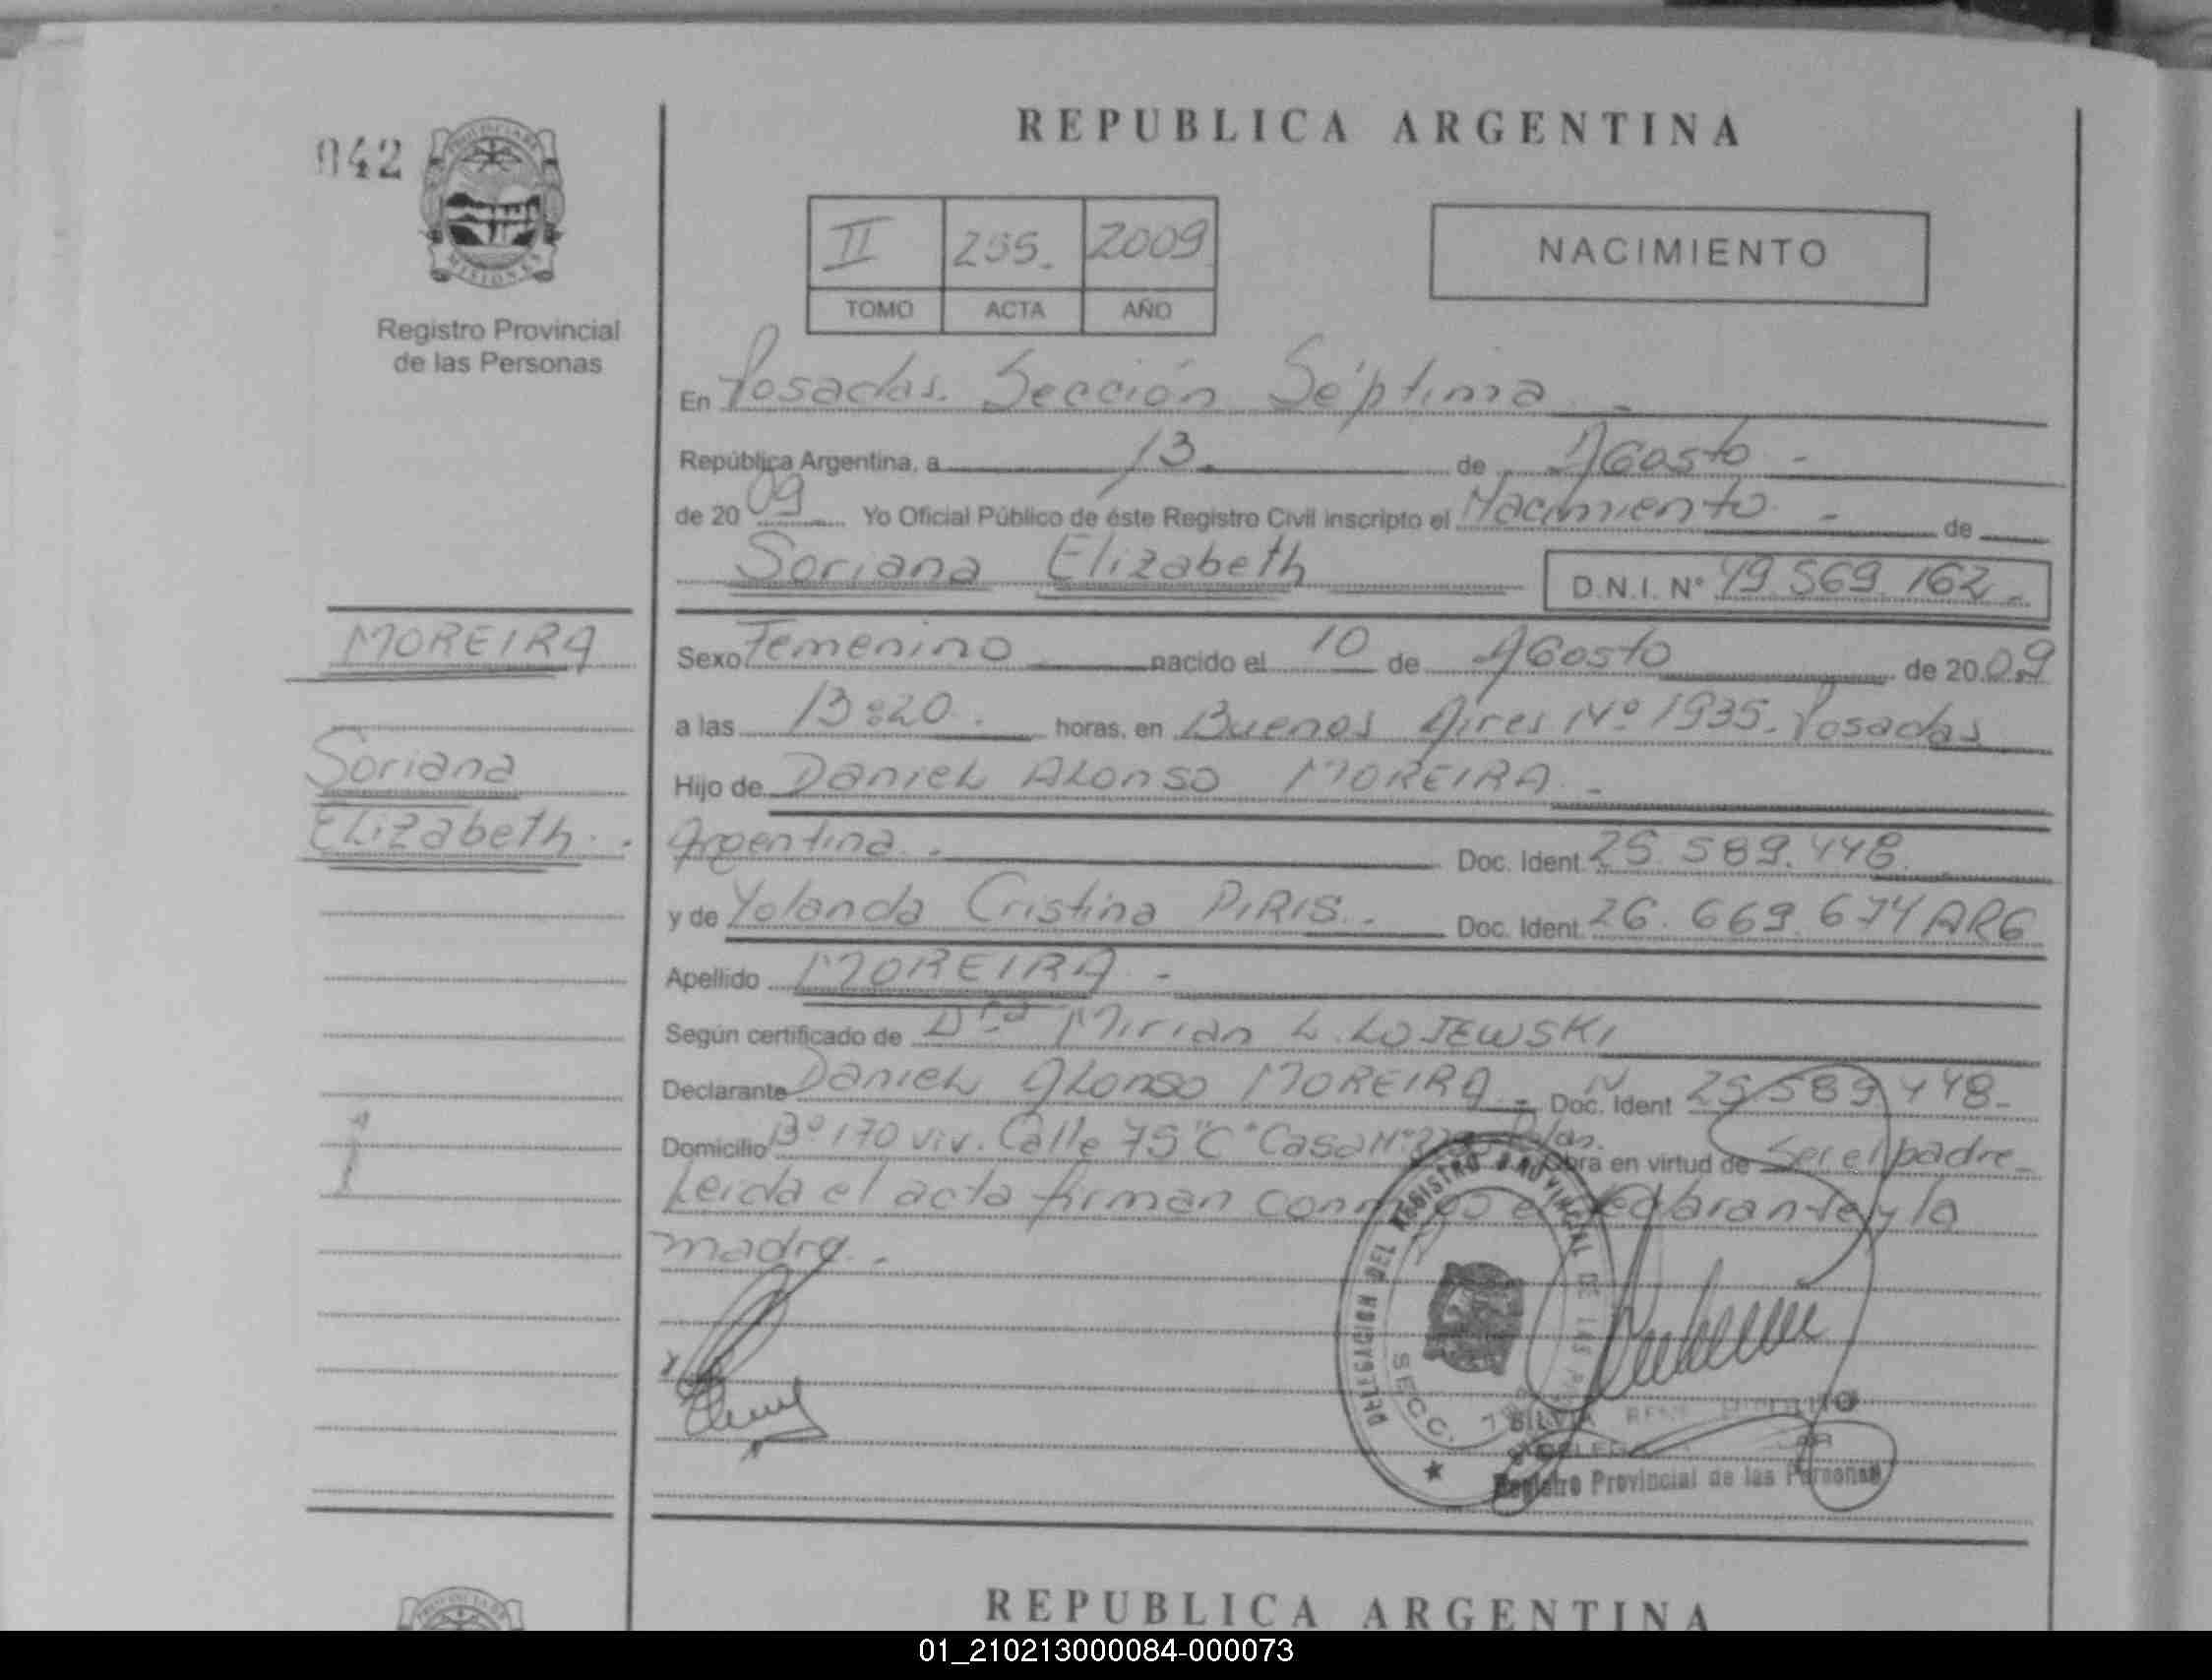 REPUBLICA ARGENTINA
042
PROVINCIA DE
MISIONES
Registro Provincial
de las Personas
II 255. 2009
TOMO ACTA AÑO
NACIMIENTO
En Posadas. Sección Séptima -
República Argentina, a 13 de Agosto -
de 20 09 Yo Oficial Público de éste Registro Civil inscripto el Nacimiento - de
Soriana Elizabeth D.N.I. Nº 49.569.162.-
MOREIRA
Soriana
Elizabeth.
Sexo Femenino nacido el 10 de Agosto de 20 09
a las 13:20. horas, en Buenos Aires Nº 1935. Posadas
Hijo de Daniel Alonso MOREIRA. -
Argentina. Doc. Ident. 25.589.448.
y de Yolanda Cristina PIRIS. Doc. Ident. 26.669.674 ARG
Apellido MOREIRA -
Según certificado de Dra Mirian L. LOJEWSKI
Declarante Daniel Alonso MOREIRA - Doc. Ident 25.589.448.-
Domicilio Bº 170 viv. Calle 75 "C" Casa Nº Obra en virtud de Ser el padre
Leida el acta firman conmigo el declarante y la
madre. -
DELEGACION DEL REGISTRO PROVINCIAL DE LAS
SECC. 7
SILVIA
Registro Provincial de las Personas
REPUBLICA ARGENTINA
01_210213000084-000073